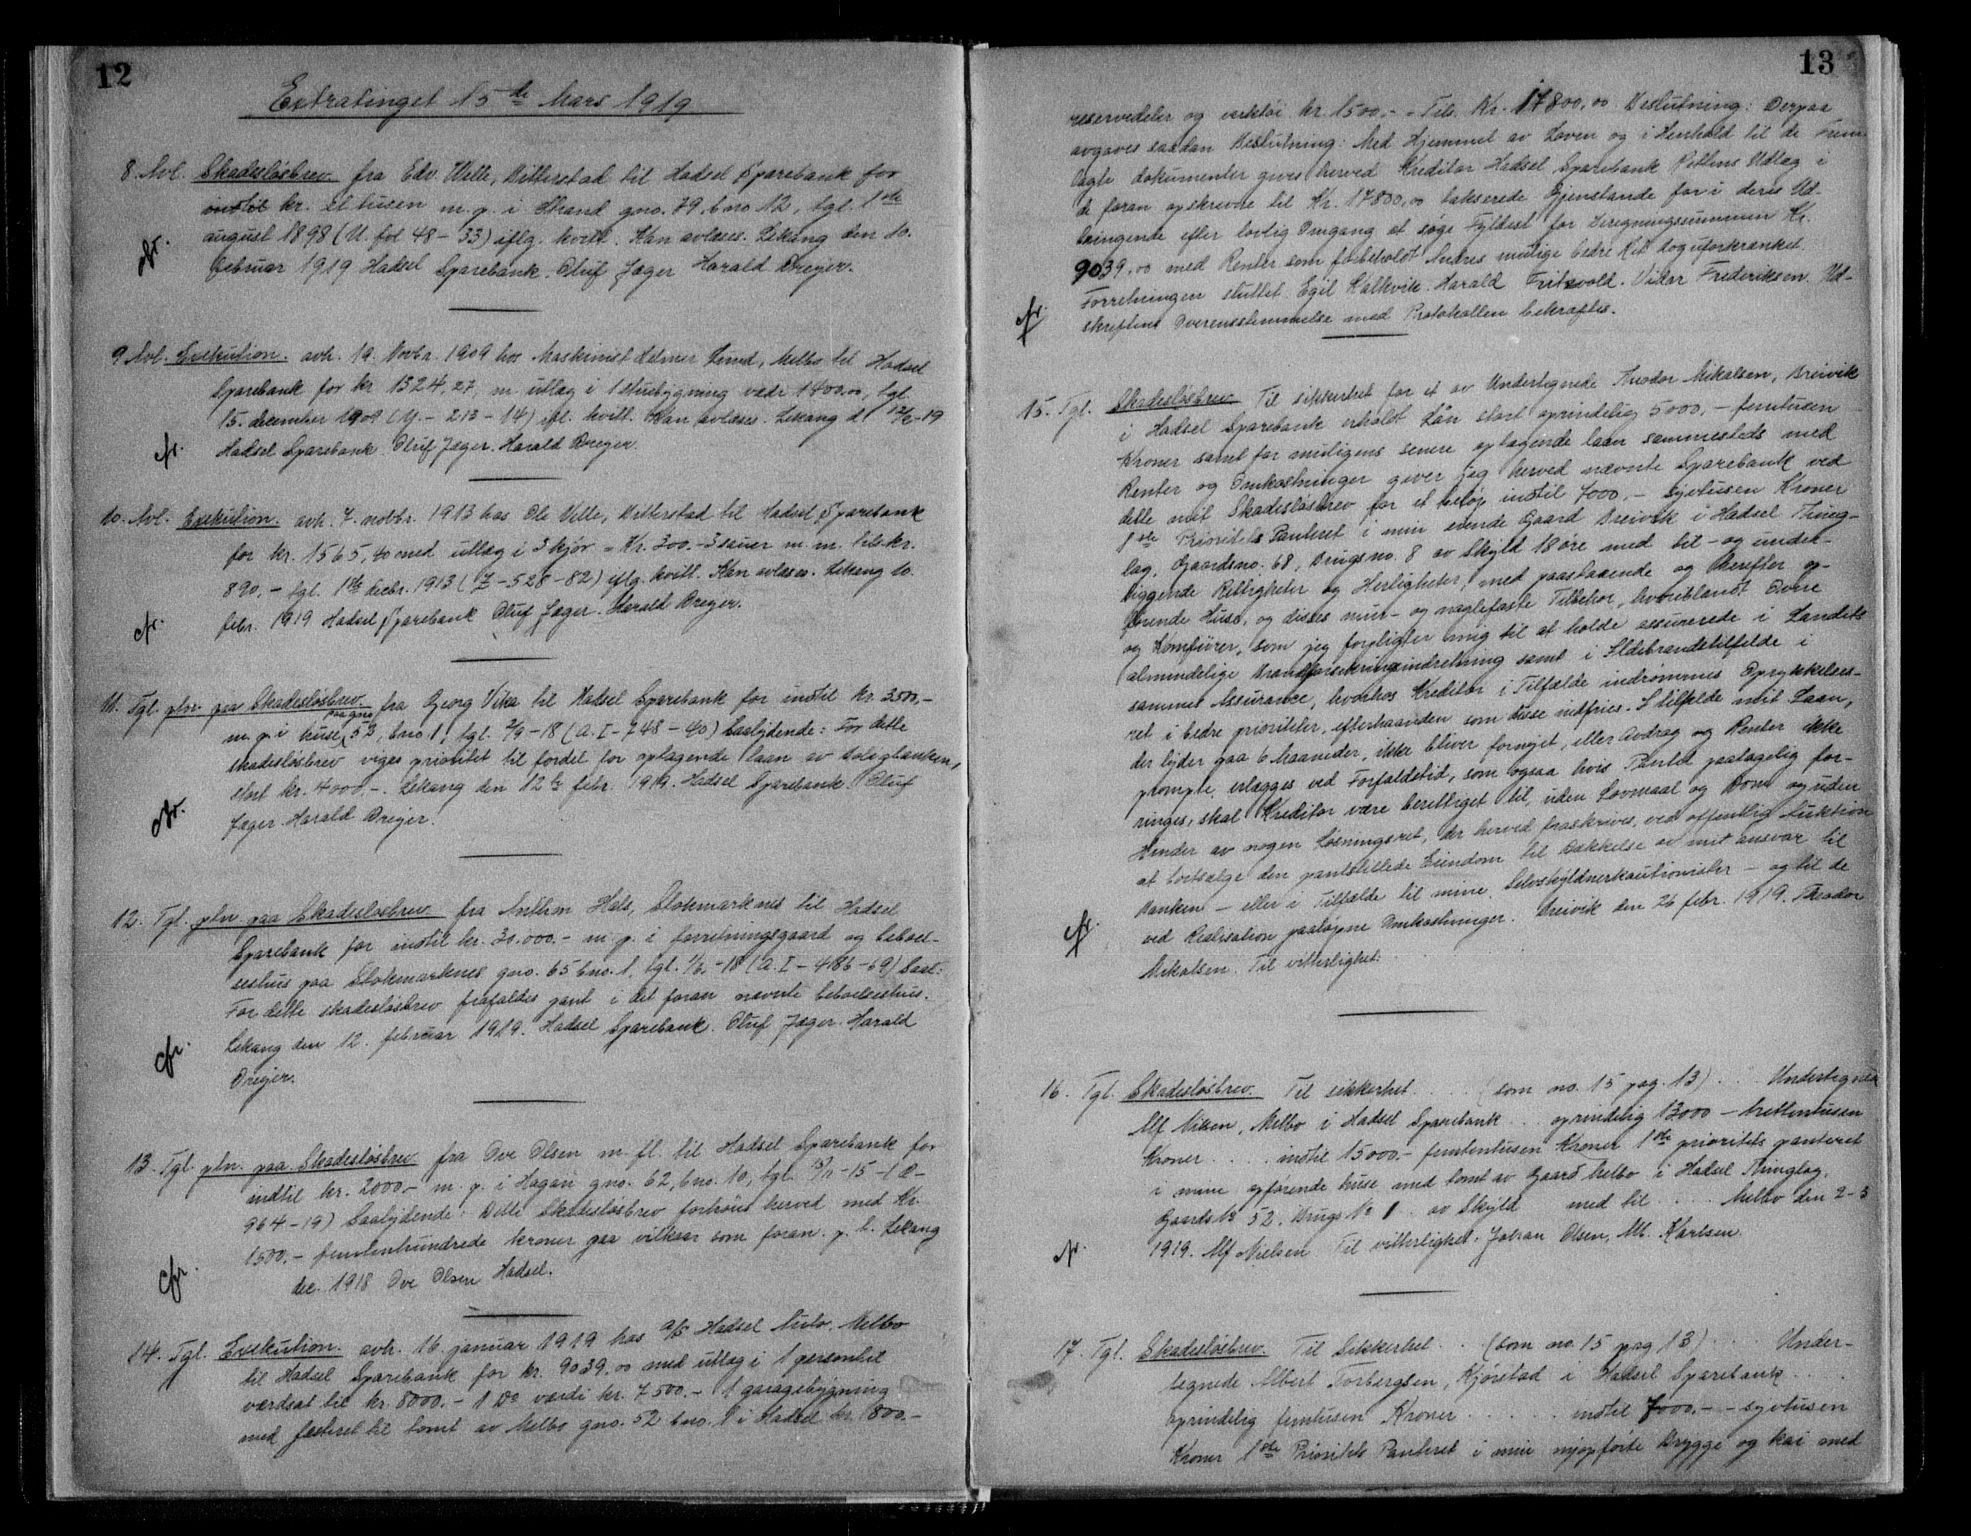 12
Extratinget 15de Mars 1919
8. Avl. Skadesløsbrev fra Edv. Welle, Vitterstad til Hadsel Sparebank for
indtil kr. et tusen m. p. i Strand gno. 79, bno 12, tgl. 1ste
august 1898 (U. fol 48-33) iflg. kvitt. Kan avlæses. Lekang den 10.
februar 1919 Hadsel Sparebank. Oluf Jæger Harald Dreyer.
cfr.
9. Avl. Exekution. avh. 19. Novbr. 1909 hos Maskinist Hilmar Lund, Melbo til Hadsel
Sparebank for kr. 1324,27, m. utlæg i 1 Stuebygning værdi 1400.00, tgl.
15. december 1909 (Y. - 213 - 14) ifl. kvitt. Kan avlæses. Lekang d. 12/2-19
Hadsel Sparebank. Oluf Jæger. Harald Dreyer.
cfr.
10. Avl. Exekution. avh. 7. novbr. 1913 hos Ole Velle, Vitterstad til Hadsel Sparebank
for kr. 1565,40 med utlæg i 3 kjør = Kr. 300.- 3 sauer m. m. tils. kr.
890.- tgl. 1ste decbr. 1913 (Z - 528 - 82) iflg. kvitt. Kan avlæses. Lekang 10.
febr. 1919 Hadsel Sparebank Oluf Jæger. Harald Dreyer.
cfr.
11. Tgl. ptn. paa Skadesløsbrev fra Georg Vika til Hadsel Sparebank for indtil kr. 3500,-
m. p. i huse paa gno 53, bno 1, tgl. 2/9-18 (A. I - 748 - 40) Saalydende: For dette
skadesløsbrev viges prioritet til fordel for optagende laan av
stort kr. 4000.-. Lekang den 12te febr. 1919. Hadsel Sparebank Oluf
Jæger Harald Dreyer.
cfr.
12. Tgl. ptn paa Skadesløsbrev fra Anthon Hals, Stokmarknes til Hadsel
Sparebank for indtil kr. 30.000.- m. p. i forretningsgaard og beboel-
seshus paa Stokmarknes gno. 65 bno. 1, tgl. -18 (A. I - 486 - 69) Saal:
For dette skadesløsbrev frafaldes pant i det foran nævnte beboelseshus.
Lekang den 12. februar 1919. Hadsel Sparebank. Oluf Jæger. Harald
Dreyer.
cfr.
13. Tgl. ptn. paa Skadesløsbrev fra Ove Olsen m. fl. til Hadsel Sparebank for
indtil kr. 2000.- m. p. i Hagan gno. 62, bno. 10, tgl.
964 - 19) Saalydende: Dette Skadesløsbrev forhøies herved med Kr.
1500.- femtenhundrede kroner paa vilkaar som foran. p. t. Lekang
dec. 1918 Ove Olsen Hadsel.
cfr.
14. Tgl. Exekution. avh. 16. januar 1919 hos A/S Hadsel Auto, Melbo
til Hadsel Sparebank for kr. 9039.00 med utlæg i 1 personbil
værdsat til kr. 8000.- 1 Do værdi kr. 7500.- 1 garagebygning
med festeret til tomt av Melbo gno. 52 bno. 1 i Hadsel kr. 800.-
13
reservedeler og verktøi kr. 1500.- = Tils. Kr. 17800,00 Beslutning: Derpaa
avgaves saadan Beslutning: Med Hjemmel av Loven og i Henhold til de Frem-
lagte dokumenter gives herved Kreditor Hadsel Sparebank Rettens Utlæg i
de foran opskrevne til Kr. 17800,00 takserede Gjenstande for i deres Ud-
bringende efter lovlig Omgang at søge Fyldest for Beregningssummen Kr.
9039,00 med Renter som forbeholdt Andres mulige bedre Ret dog uforkrænket.
Forretningen sluttet. Egil Kalkvik. Harald Fritzvold. Vidar Frederiksen. Ud-
skriftens Overensstemmelse med Protokollen bekræftes.
cfr.
15. Tgl. Skadesløsbrev. Til sikkerhet for et av Undertegnede Theodor Mikalsen, Breivik
i Hadsel Sparebank erholdt Lån stort oprindelig 5000,- femtusen
Kroner samt for muligens senere optagende laan sammesteds med
Renter og Omkostninger giver jeg herved nævnte Sparebank ved
dette mit Skadesløsbrev for et beløp indtil 7000.- syvtusen Kroner
1ste Prioritets Panteret i min eiende Gaard Breivik i Hadsel Thing-
lag, Gaardsno. 68, Brugsno. 8 av Skyld 18 øre med til- og under-
liggende Rettigheter og Herligheter, med paastaaende og herefter op-
førende Huse, og disses mur- og naglefaste Tilbehør, hvoriblandt Ovne
og Komfürer, som jeg forpligter mig til at holde assurerede i Landets
almindelige Brandforsikringsindretning samt i Ildebrandstilfælde i
sammes Assurance, hvorhos Kreditor i Tilfælde indrømmes Oprykkelses-
ret i bedre prioriteter, efterhaanden som disse indfries. I tilfælde mit Laan,
der lyder paa 6 Maaneder, ikke bliver fornyet, eller Avdrag og Renter ikke
prompte erlægges ved Forfaldstid, som ogsaa hvis Pantet paatagelig for-
ringes, skal Kreditor være berettiget til, uden Lovmaal og Dom og uden
Hinder av nogen Løsningsret, der herved fraskrives, ved offentlig Auktion
at bortsælge den pantstillede Eiendom til Dækkelse av mit ansvar til
Banken - eller i Tilfælde til mine Selvskyldnerkautionister - og til de
ved Realisation paaløpne Omkostninger. Breivik den 26 febr. 1919. Theodor
Mikalsen. Til vitterlighet:
cfr.
16. Tgl. Skadesløsbrev. Til sikkerhet . . . . (som no. 15 pag. 13) . . . Undertegnede
Alf Nilsen, Melbo i Hadsel Sparebank . . . oprindelig 13000 - trettentusen
Kroner . . . . indtil 15000.- femtentusen Kroner 1ste prioritets panteret
i mine opførende huse med tomt av Gaard Melbo i Hadsel Thinglag.
Gaards No 52. Brugs No 1 . . av Skyld med til . . . . Melbo den 2-3
1919. Alf Nielsen Til vitterlighet: Johan Olsen, Mt. Karlsen.
cfr.
17. Tgl. Skadesløsbrev. Til Sikkerhet . . (som no. 15 pag 13) . . . . Under-
tegnede Albert Torbergsen, Kjørstad i Hadsel Sparebank . . .
oprindelig femtusen Kroner . . . . . . indtil 7000.- - syvtusen
Kroner 1ste Prioritets Panteret i min nyopførte Brygge og kai med